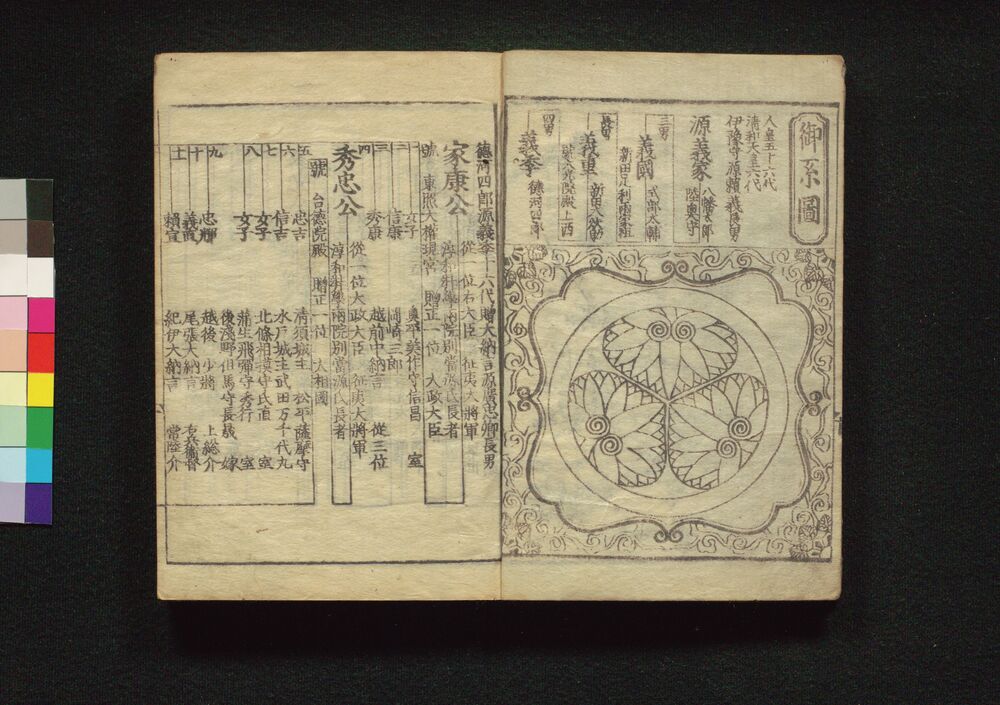 御系圖
人皇五十六代
清和天皇六代
伊豫守源頼義長男
源義家 八幡太郎
陸奥守
三男
義國 式部大輔
新田足利
長男
義重 新田
上西
四男
義季 徳河四郎
德河四郎源義季十六代贈大納言源廣忠卿長男
家康公 從一位右大臣 征夷大將軍
淳和奬學兩院別當源氏長者
號 東照大權現宮 贈正一位 大政大臣
一 女子 奥平美作守信昌 室
二 信康 岡崎三郎
三 秀康 越前中納言 從三位
四
秀忠公 從一位大政大臣 征夷大將軍
淳和奬學兩院別當源氏長者
號 台德院殿 贈正一位 大相國
五 忠吉 清須城主 松平薩摩守
六 信吉 水戸城主武田万千代丸
七 女子 北條相模守氏直 室
八 女子 蒲生飛彈守秀行 室
後淺野但馬守長晟 嫁
九 忠輝 越後少將 上総介
十 義直 尾張大納言 右兵衛督
土 頼宣 紀伊大納言 常陸介